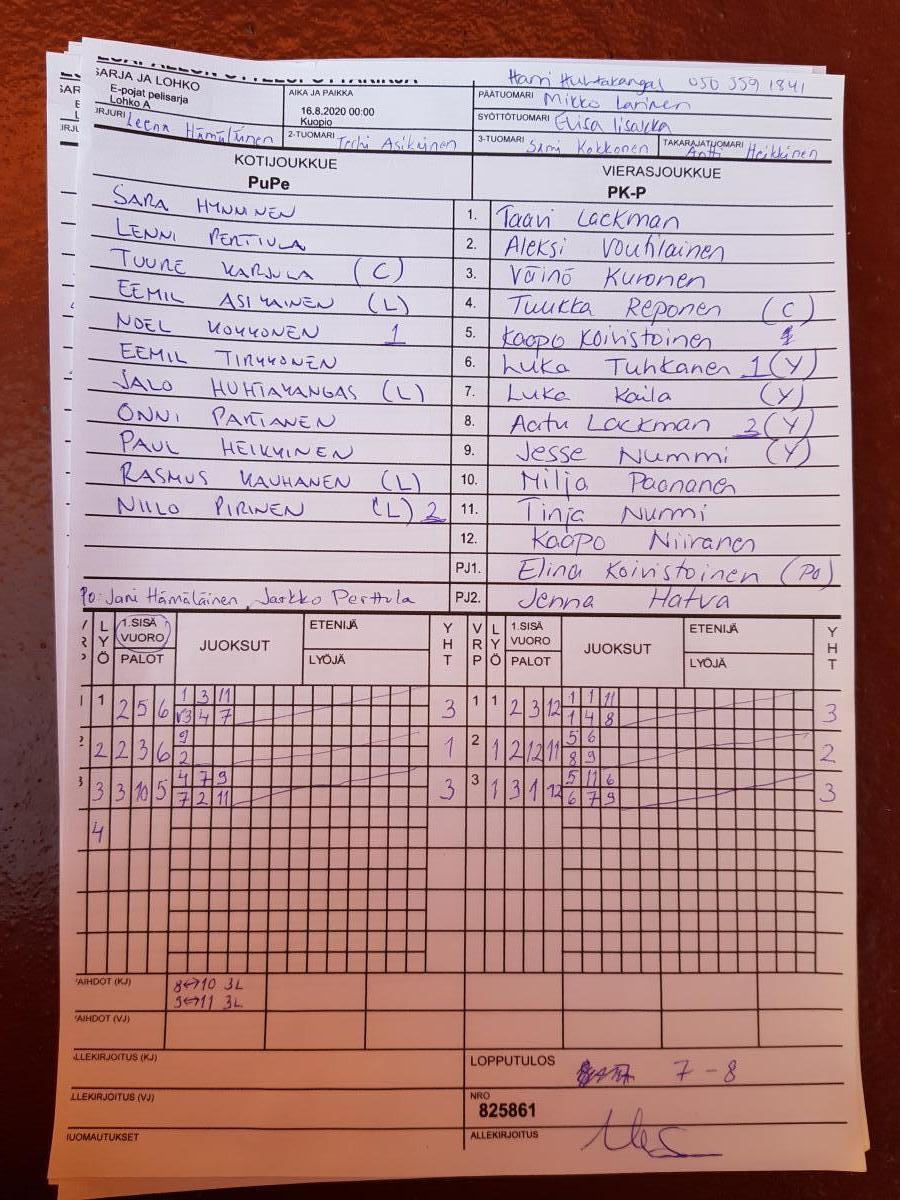 SARJA JA LOHKO
E-pojat pelisarja
Lohko A
AIKA JA PAIKKA
16.8.2020 00:00
Kuopio
Harri Huhtakangas 050 359 1841
PÄÄTUOMARI Mikko Larinen
SYÖTTÖTUOMARI Elisa Iisakka
Leena Hämäläinen
2-TUOMARI Terhi Asikainen
3-TUOMARI Sami Kokkonen
TAKARAJATUOMARI Antti Heikkinen
KOTIJOUKKUE
PuPe
VIERASJOUKKUE
PK-P
SARA HYNNINEN 1. Taavi Lackman
LENNI PERTTULA 2. Aleksi Voutilainen
TUURE KARJULA (C) 3. Väinö Kuronen
EEMIL ASIKAINEN (L) 4. Tuukka Reponen (C)
NOEL KOKKONEN 1 5. Kaapo Koivistoinen
EEMIL TIRKKONEN 6. Luka Tuhkanen 1 (Y)
JALO HUHTAKANGAS (L) 7. Luka Kaila (Y)
ONNI PARTANEN 8. Aatu Lackman 2 (Y)
PAUL HEIKKINEN 9. Jesse Nummi (Y)
RASMUS KAUHANEN (L) 10. Milja Paananen
NIILO PIRINEN (L) 2 11. Tinja Nurmi
12. Kaapo Niiranen
PJ1. Elina Koivistoinen (PO)
PO: Jani Hämäläinen, Jarkko Perttula PJ2. Jenna Hatva
LYÖ 1.SISÄ VUORO PALOT JUOKSUT ETENIJÄ LYÖJÄ YHT VRP LYÖ 1.SISÄ VUORO PALOT JUOKSUT ETENIJÄ LYÖJÄ YHT
1 3 11 1 1 11
1 2 5 6 3 4 7 3 1 1 2 3 12 1 4 8 3
9 5 6
2 2 3 6 2 1 2 1 2 12 11 8 9 2
4 7 9 5 11 6
3 3 10 5 7 2 11 3 3 1 3 1 12 6 7 9 3
4
AIHDOT (KJ) 8↔10 3L
9↔11 3L
AIHDOT (VJ)
LLEKIRJOITUS (KJ)
LOPPUTULOS 7-8
LLEKIRJOITUS (VJ)
NRO
825861
HUOMAUTUKSET
ALLEKIRJOITUS